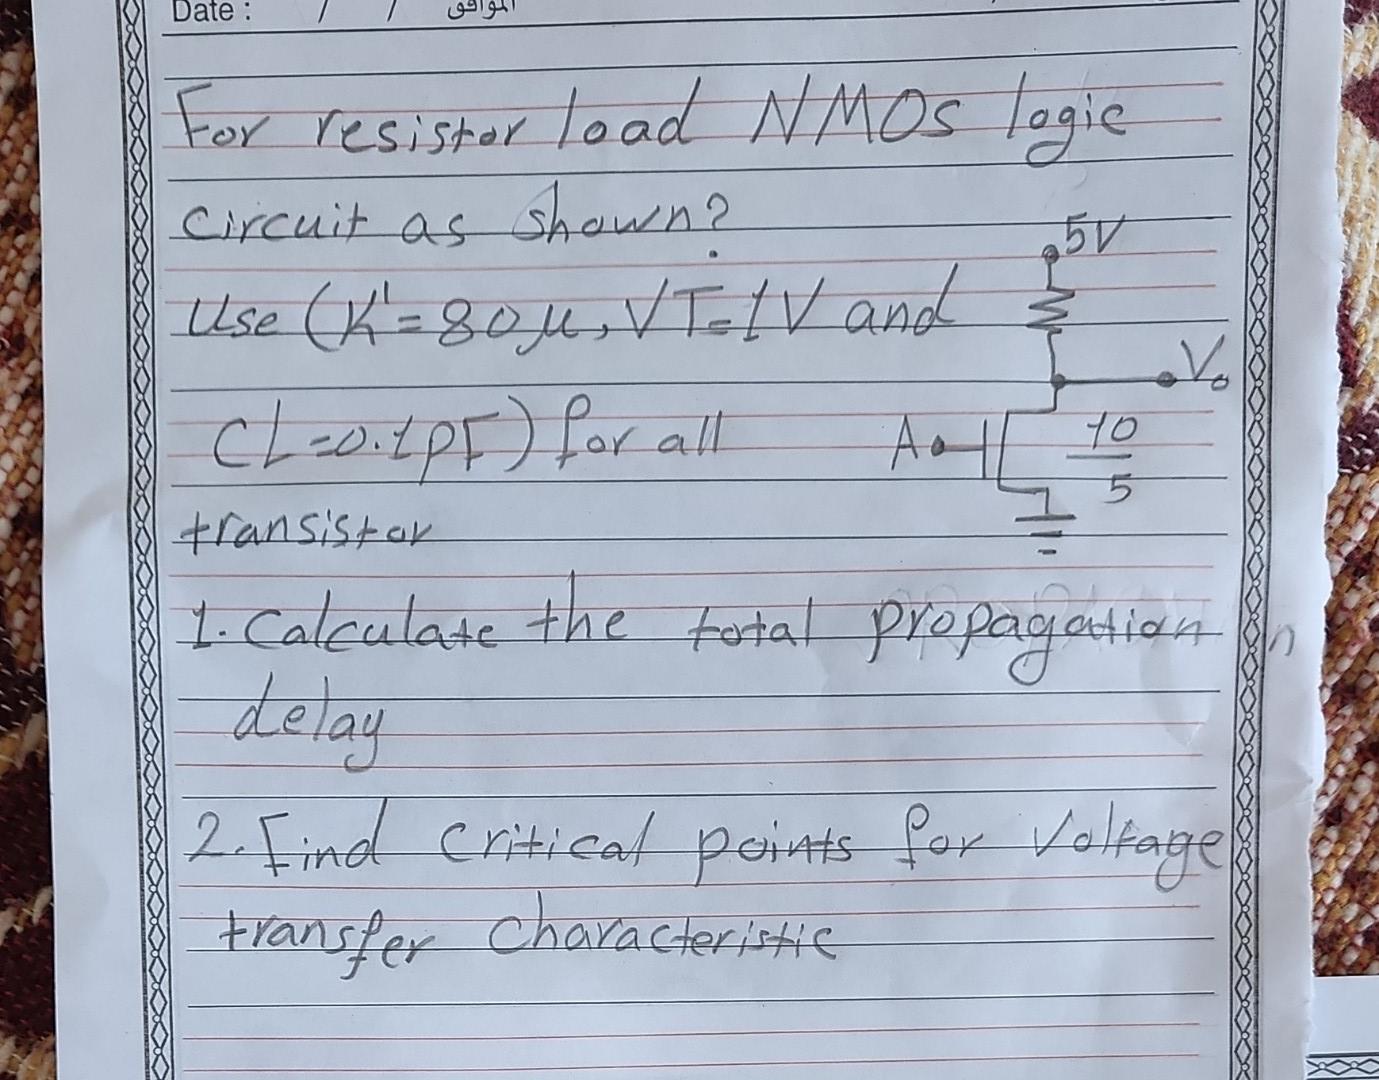 Date :   /   /   الموافق
For resistor load NMOS logic
circuit as shown?
5V
Use (K'=80μ, VT=1V and
Vo
CL=0.1pF) for all
A
10
5
transistor
1. Calculate the total propagation n
delay
2. Find critical points for Voltage
transfer characteristic